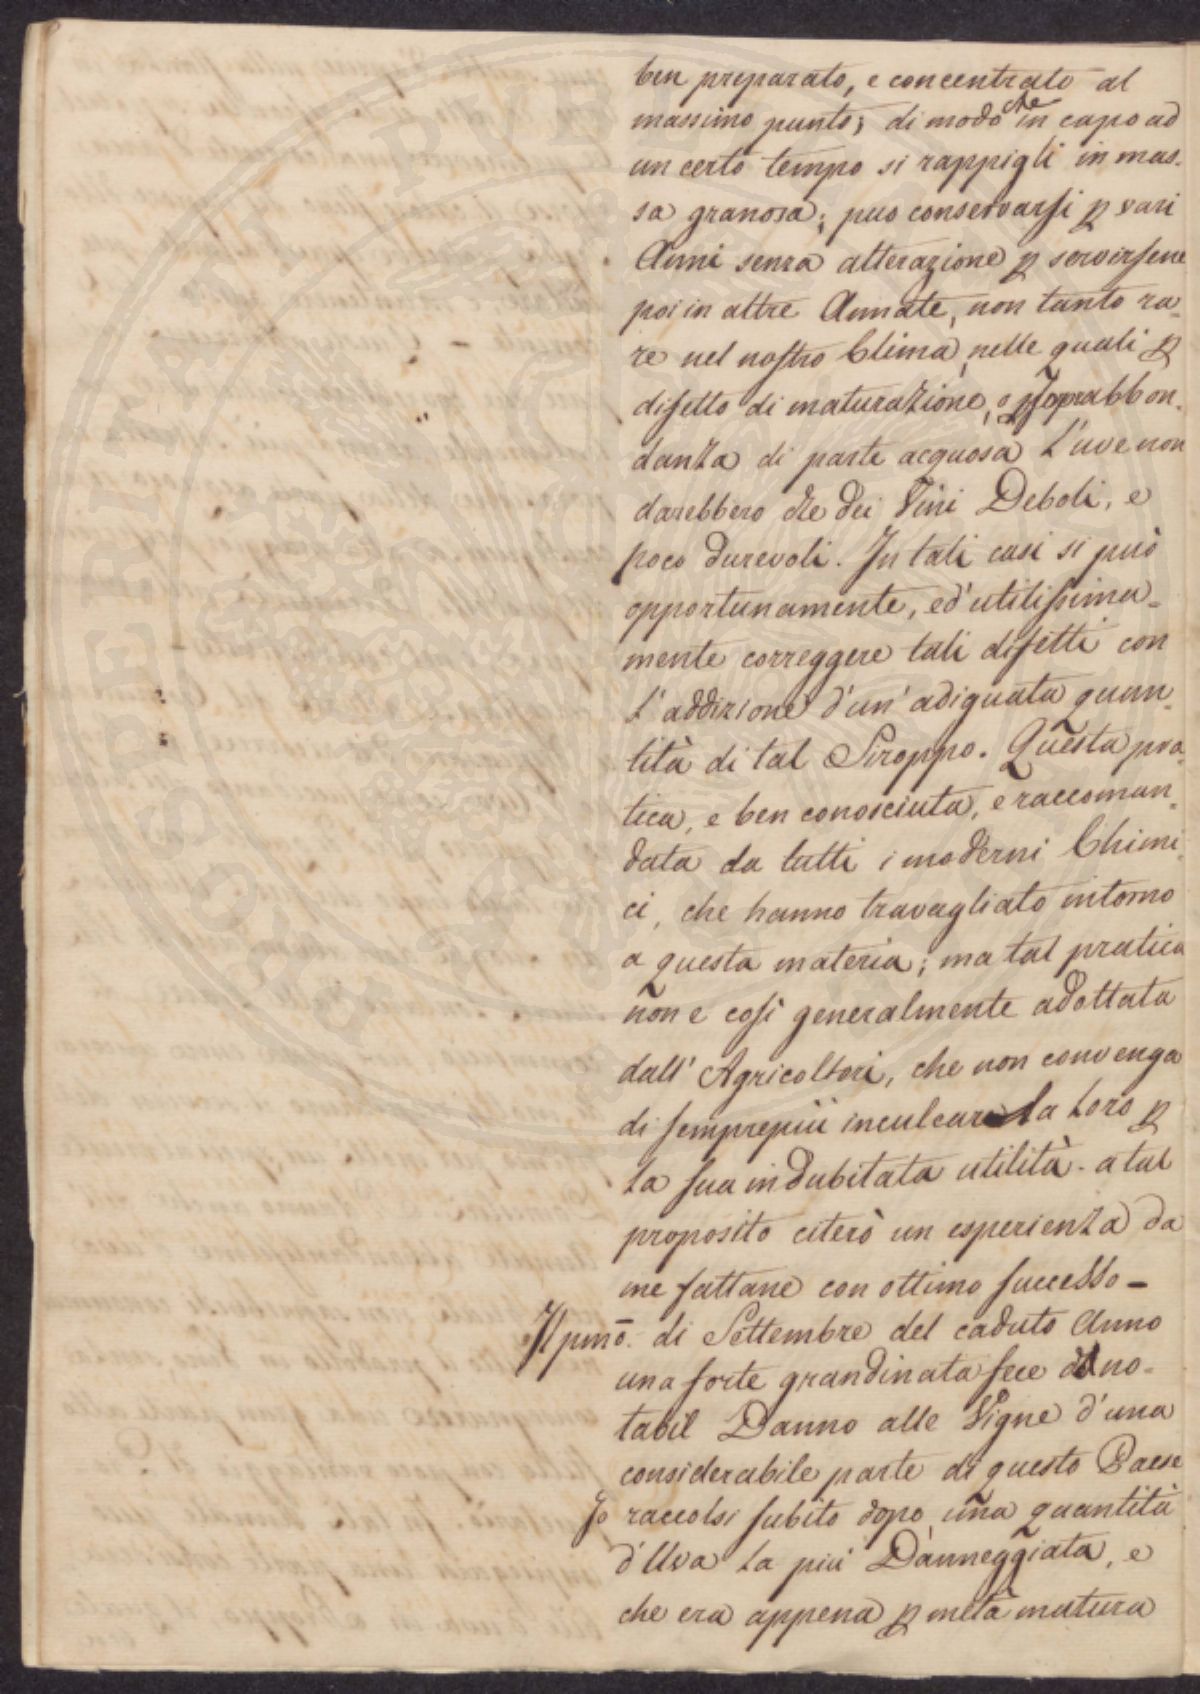 ben preparato, e concentrato al
massimo punto; di modo che in capo ad
un certo tempo si rappigli in mas-
sa granosa; può conservarsi ꝑ vari
Anni senza alterazione ꝑ servirsene
poi in altre Annate, non tanto ra-
re nel nostro Clima, nelle quali ꝑ
difetto di maturazione, o ꝑ soprabbon-
danza di parte acquosa l'uve non
darebbero che dei Vini Deboli, e
poco durevoli. In tali casi si può
opportunamente, ed' utilissima-
mente correggere tali difetti con
l'addizione d'un' adiguata quan-
tità di tal Siroppo. Questa pra-
tica, e ben conosciuta, e raccoman-
data da tutti i moderni Chimi-
ci, che hanno travagliato intorno
a questa materia; ma tal pratica
non e così generalmente adottata
dall' Agricoltori, che non convenga
di semprepiù inculcarla loro ꝑ
la sua indubitata utilità. a tal
proposito citerò un esperienza da
me fattane con ottimo successo –
Il pmō. di Settembre del caduto Anno
una forte grandinata fece no-
tabil Danno alle Vigne d'una
considerabile parte di questo Paese
Io raccolsi subito dopo una quantità
d'Uva la più Danneggiata, e
che era appena ꝑ metà matura